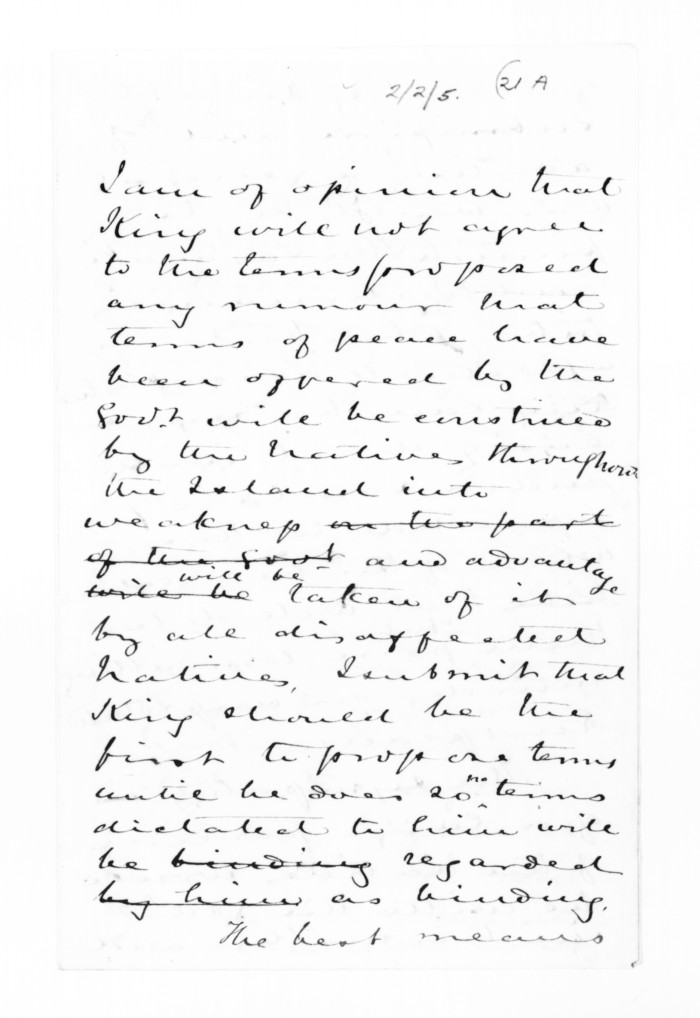 2/2/5. (21 A
I am of opinion that
King will not agree
to the terms proposed
any rumour that
terms of peace have
been offered by the
Govt. will be construed
by the Natives throughout
the Island into
weakness on the part
of the Govt and advantage
will be
will be taken of it
by all disaffected
Natives, I submit that
King should be the
first to propose terms
until he does so no terms
dictated to him will
be binding regarded
by him as binding.
The best means